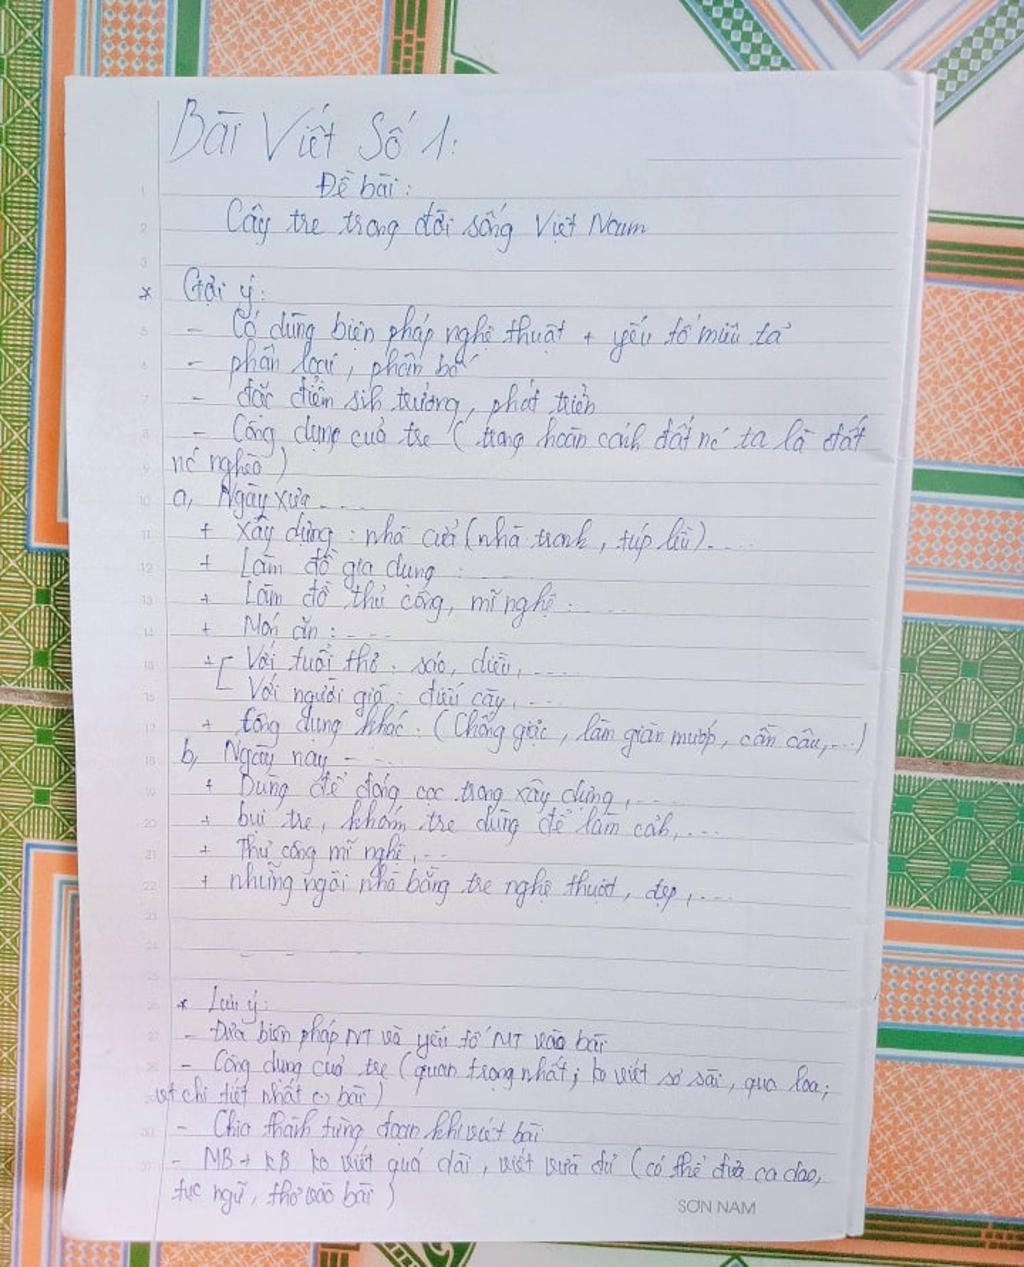 Bài Viết Số 1:
Đề bài:
Cây tre trong đời sống Việt Nam
* Gợi ý:
- Có dùng biện pháp nghệ thuật + yếu tố miêu tả
- phân loại, phân bố
- đặc điểm sinh trưởng, phát triển
- Công dụng của tre ( trong hoàn cảnh đất nc ta là đất
nc nghèo )
a, Ngày xưa ....
+ Xây dựng : nhà cửa (nhà tranh, túp lều) ....
+ Làm đồ gia dụng : ....
+ Làm đồ thủ công, mĩ nghệ : ....
+ Món ăn : ....
+ [ Với tuổi thơ : sáo, diều, ....
Với người già : điếu cày, ....
+ Công dụng khác : ( Chống giặc, làm giàn mướp, cần câu, ...)
b, Ngày nay - ....
+ Dùng để đóng cọc trong xây dựng, ....
+ bụi tre, khóm tre dùng để làm cảnh, ...
+ Thủ công mĩ nghệ, ...
+ những ngôi nhà bằng tre nghệ thuật, đẹp, ....
* Lưu ý:
- Đưa biện pháp NT và yếu tố MT vào bài
- Công dụng của tre ( quan trọng nhất ; ko viết sơ sài, qua loa ;
viết chi tiết nhất bài )
- Chia thành từng đoạn khi viết bài
- MB + KB ko viết quá dài, viết vừa đủ ( có thể đưa ca dao,
tục ngữ, thơ vào bài )
SƠN NAM